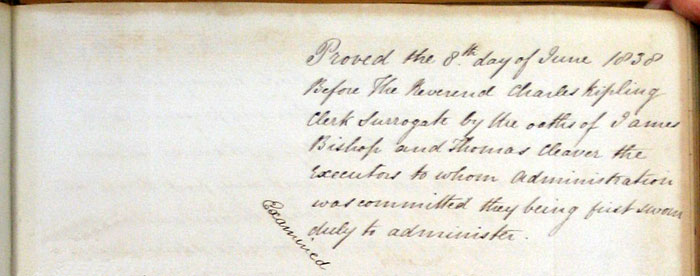 Proved the 8th day of June 1838
Before The Reverend Charles Kipling
Clerk Surrogate by the oaths of James
Bishop and Thomas Cleaver the
Executors to whom Administration
was committed they being first sworn
duly to administer.
Examined